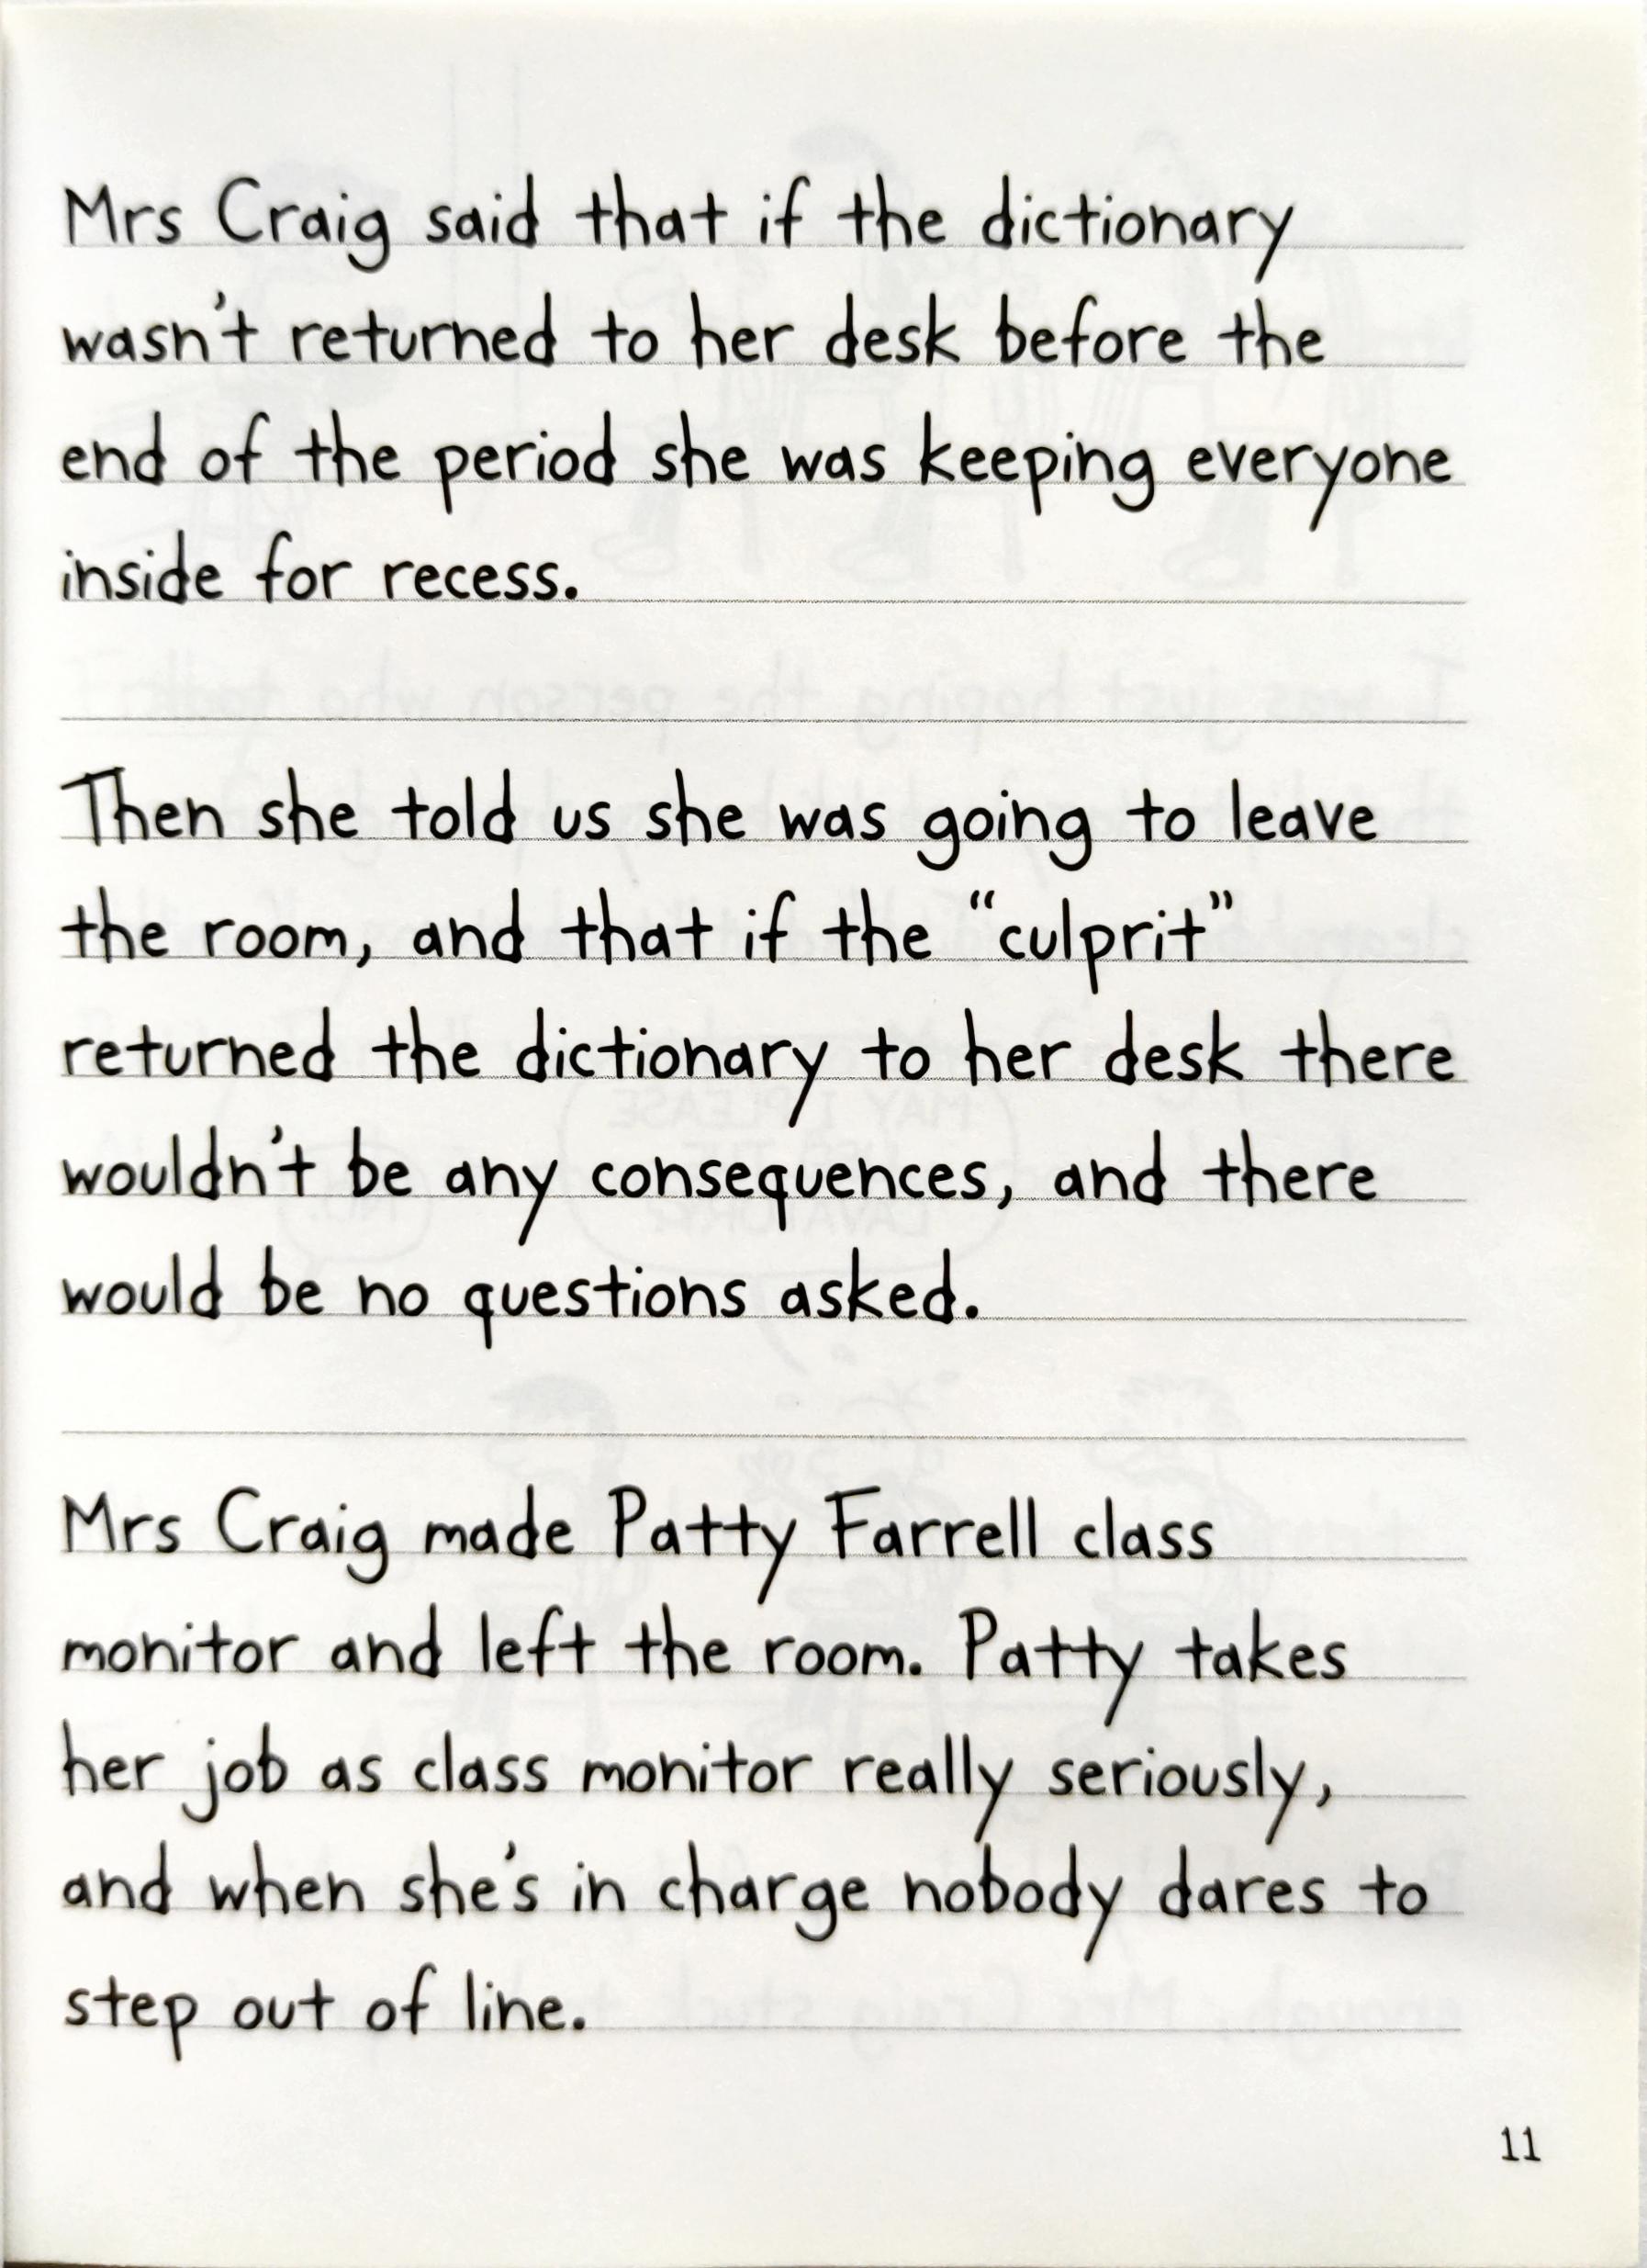 Mrs Craig said that if the dictionary
wasn't returned to her desk before the
end of the period she was keeping everyone
inside for recess.
Then she told us she was going to leave
the room, and that if the “culprit”
returned the dictionary to her desk there
wouldn't be any consequences, and there
would be no questions asked.
Mrs Craig made Patty Farrell class
monitor and left the room. Patty takes
her job as class monitor really seriously,
and when she's in charge nobody dares to
step out of line.
11